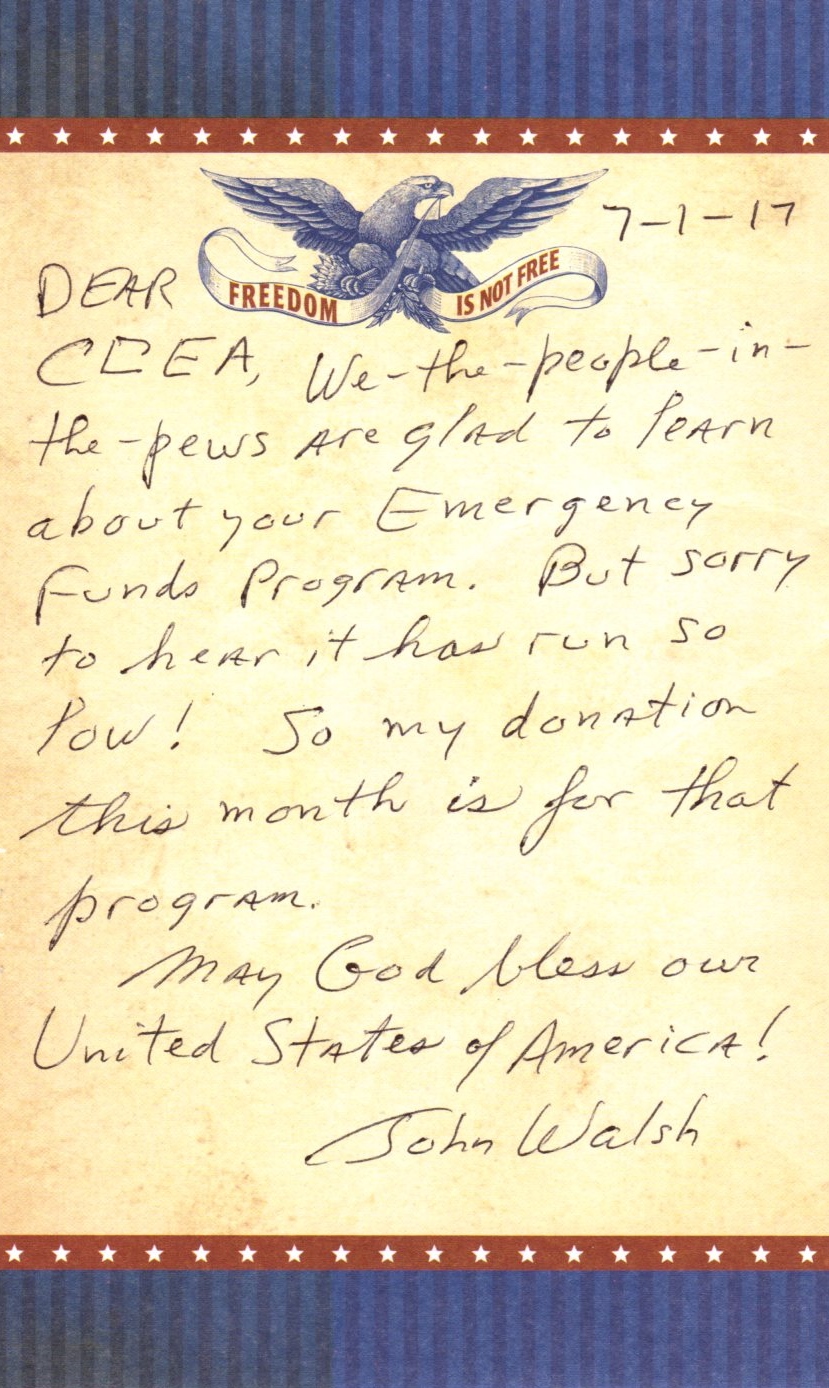 7-1-17
FREEDOM IS NOT FREE
DEAR
CCEA, We-the-people-in-
the-pews are glad to learn
about your Emergency
Funds Program. But sorry
to hear it has run so
low! So my donation
this month is for that
program.
May God bless our
United States of America!
John Walsh